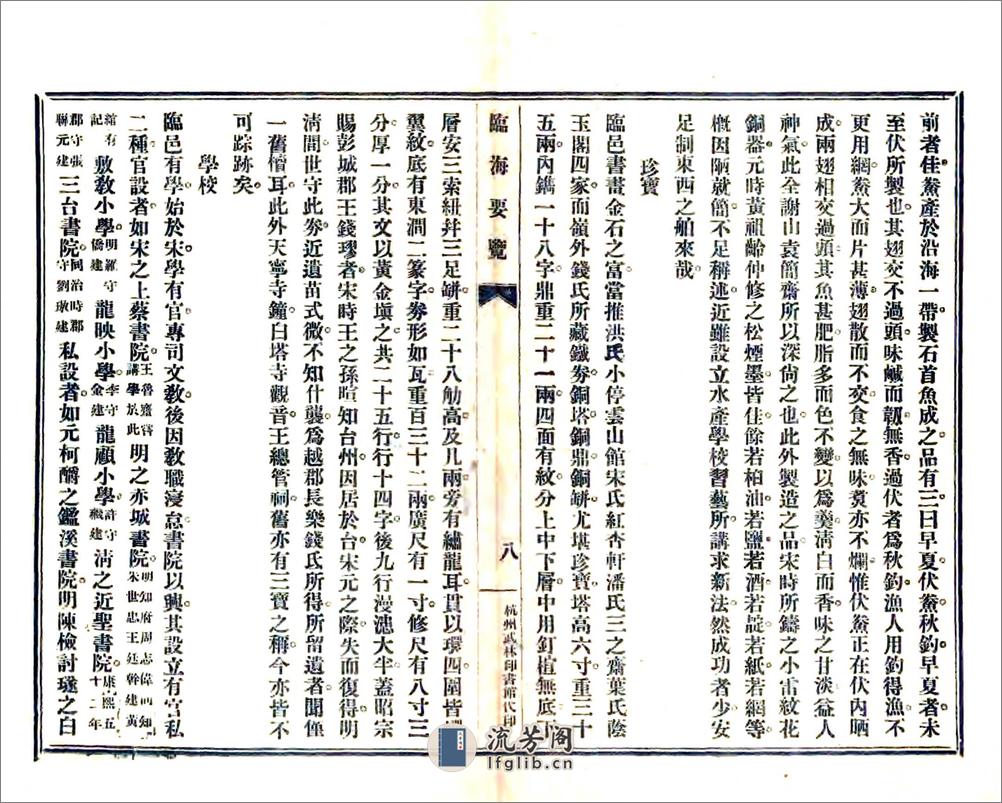 前者佳鯗產於沿海一帶製石首魚成之品有三曰早夏伏鯗秋釣早夏者未
至伏所製也其翅交不過頭味鹹而韌無香過伏者爲秋釣漁人用釣得漁不
更用網鯗大而片甚薄翅散而不交食之無味煑亦不爛惟伏鯗正在伏內晒
成兩翅相交過頭其魚甚肥脂多而色不變以爲羮淸白而香味之甘淡益人
神氣此全謝山袁簡齋所以深尙之也此外製造之品宋時所鑄之小雷紋花
銅器元時黃祖齡仲修之松煙墨皆佳餘若柏油若鹽若酒若若紙若網等
槪因陋就簡不足稱述近雖設立水產學校習藝所講求新法然成功者少安
足制東西之舶來哉
珍寶
臨邑書畫金石之富當推洪氏小停雲山館宋氏紅杏軒潘氏三之齋葉氏蔭
玉閣四家而嶺外錢氏所藏鐵劵銅塔銅鼎銅缾尤堪珍寶塔高六寸重三十
五兩內鐫一十八字鼎重二十一兩四面有紋分上中下層中用釘植無底下
臨海要覽
八
杭州武林印書館代印
層安三索紐幷三足缾重二十八觔高及几兩旁有繡龍耳貫以環四圍皆
翼紋底有東澗二篆字劵形如瓦重百三十二兩廣尺有一寸修尺有八寸三
分厚一分其文以黃金塡之共二十五行行十四字後九行漫漶大半蓋昭宗
賜彭城郡王錢鏐者宋時王之孫暄知台州因居於台宋元之際失而復得明
淸間世守此劵近遺苗式微不知什襲爲越郡長樂錢氏所得所留遺者聞僅
一舊櫝耳此外天寧寺鐘白塔寺觀音王總管祠舊亦有三寶之稱今亦皆不
可踪跡矣
學校
臨邑有學始於宋學有官專司文敎後因敎職寖怠書院以興其設立有官私
二種官設者如宋之上蔡書院王魯齋嘗講學於此明之赤城書院明知府周志偉同知朱世忠王廷幹建黃
綰有記敷敎小學明羅守僑建龍映小學李守金建龍顧小學許守建淸之近聖書院康熙五十二年
郡守張聯元建三台書院同治時郡守劉璈建私設者如元柯酹之鑑溪書院明陳檢討璲之白
流芳阁
lfglib.cn